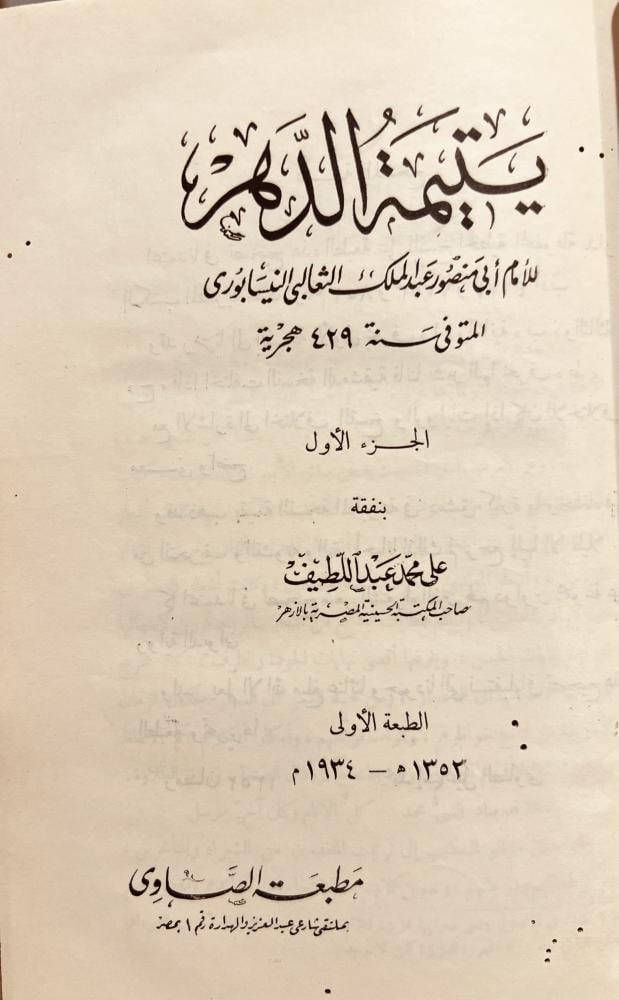 يَتِيمَةُ الدَّهْرِ
للأمام أبي منصور عبد الملك الثعالبي النيسابورى
المتوفى سنة ٤٢٩ هجرية
الجزء الأول
بنفقة
على محمد عبد اللطيف
صاحب المكتبة الحسينية المصرية بالازهر
الطبعة الأولى
١٣٥٢ ه – ١٩٣٤ م
مطبعة الصَّاوى
بملتقى شارعى عبد العزيز والهدارة رقم ١ بمصر